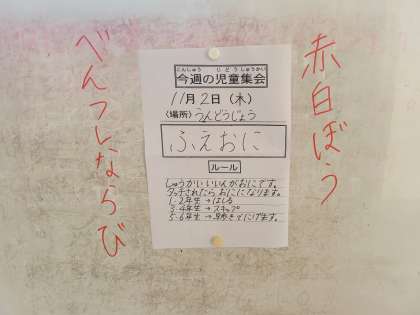 赤白ぼう
こんしゅう じどうしゅうかい
今週の児童集会
11月2日(木)
(場所) うんどうじょう
ふえおに
ルール
しゅうかいいいんがおにです。
タッチされたらおにになります。
1・2年生→はしる
3・4年生→スキップ
5・6年生→早歩きでにげます。
べんつしならび